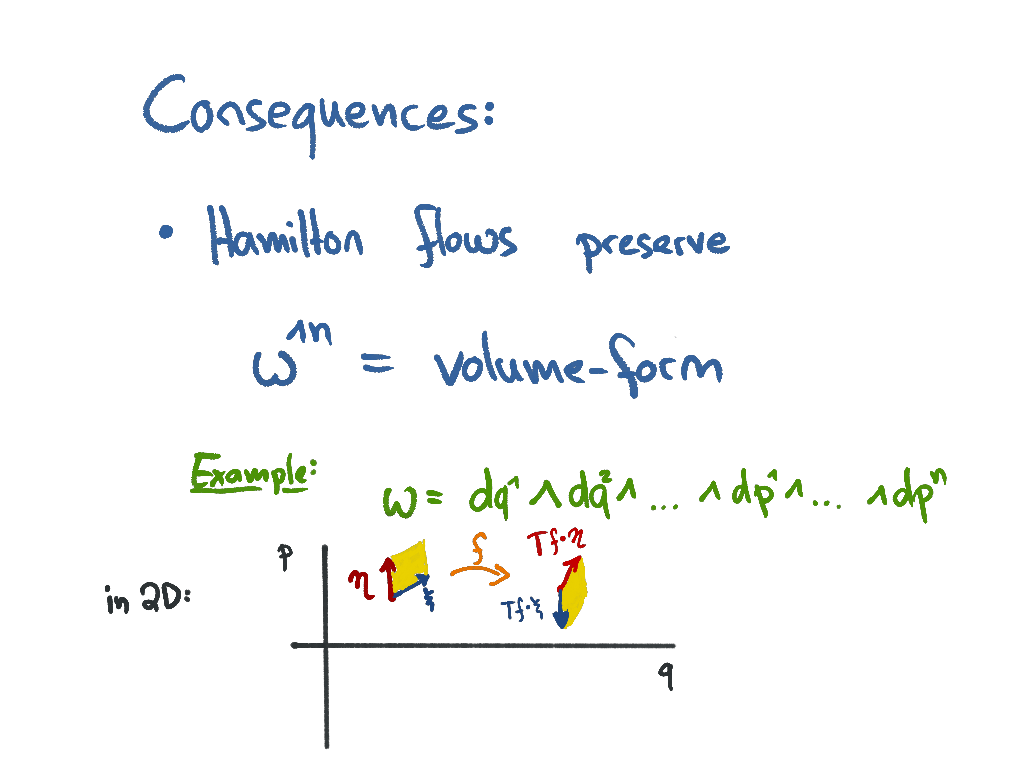 Consequences:
• Hamilton flows preserve
ω^∧n = volume-form
Example:
ω = dq¹ ∧ dq² ∧ ... ∧ dp¹ ∧ ... ∧ dpⁿ
in 2D:
p
η
ξ
f
Tf·η
Tf·ξ
q